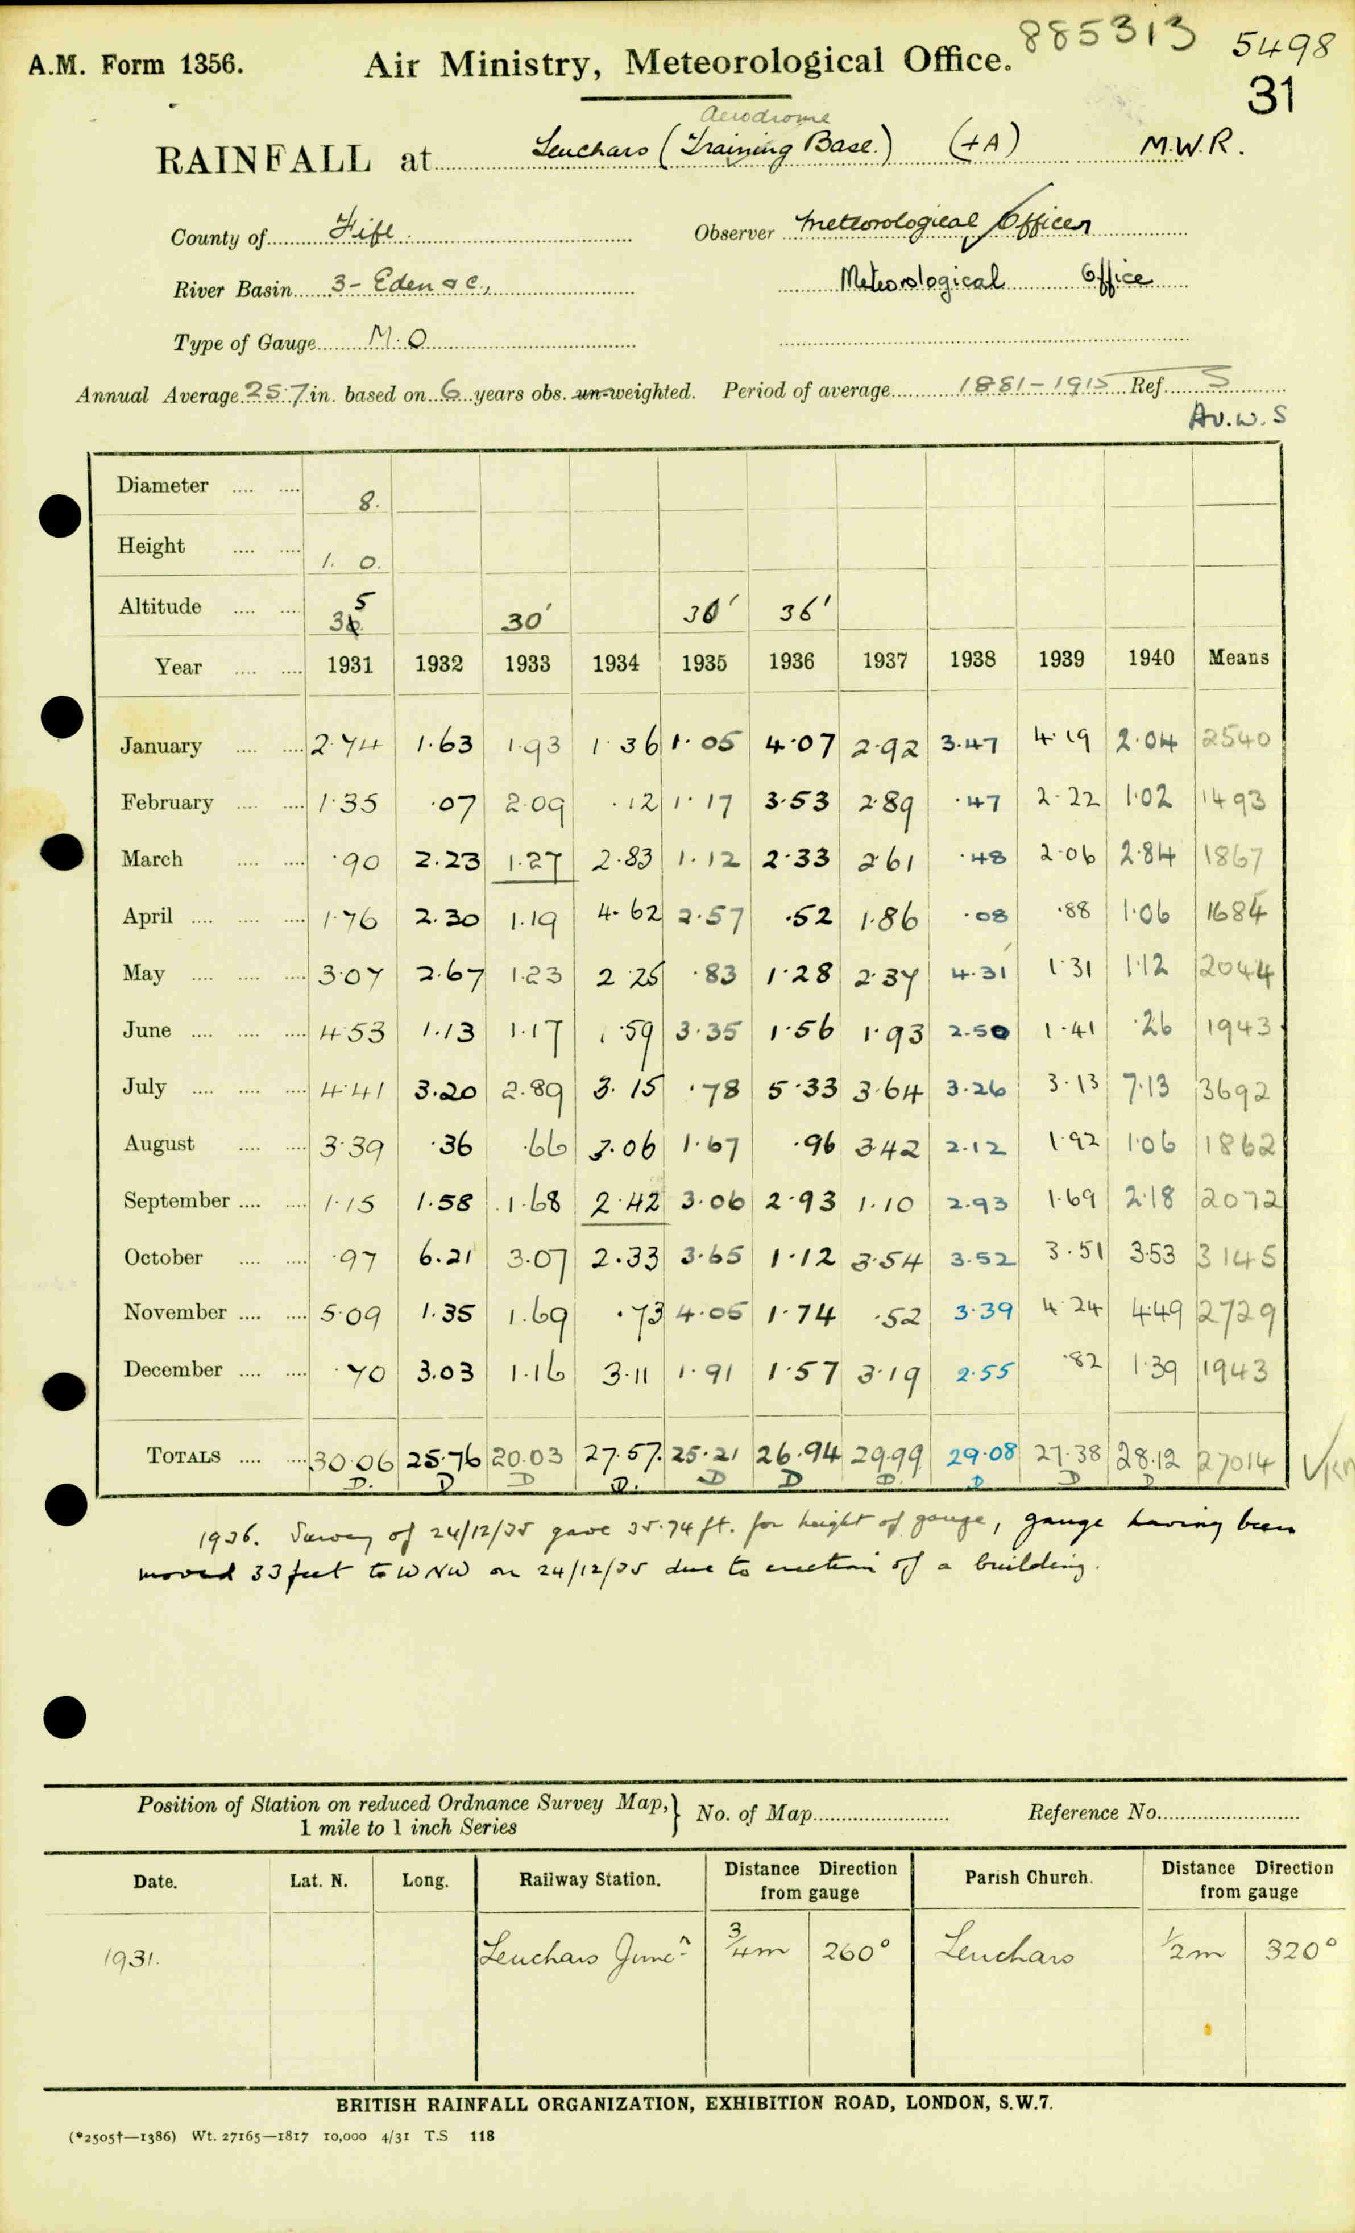 885313 5498
A.M. Form 1356. Air Ministry, Meteorological Office. 31
Aerodrome
RAINFALL at Leuchars (Training Base.) (+A) M.W.R.
County of Fife. Observer Meteorological Officer
River Basin 3- Eden &c., Meteorological Office
Type of Gauge M.O
Annual Average 25.7 in. based on 6 years obs. un-weighted. Period of average 1881-1915 Ref. S
Av.w.S
Diameter 8.
Height 1. 0.
Altitude 5 30' 30' 36'
Year 1931 1932 1933 1934 1935 1936 1937 1938 1939 1940 Means
January 2.74 1.63 1.93 1.36 1.05 4.07 2.92 3.47 4.19 2.04 2540
February 1.35 .07 2.09 .12 1.17 3.53 2.89 .47 2.22 1.02 1493
March .90 2.23 1.27 2.83 1.12 2.33 2.61 .48 2.06 2.84 1867
April 1.76 2.30 1.19 4.62 2.57 .52 1.86 .08 .88 1.06 1684
May 3.07 2.67 1.23 2.25 .83 1.28 2.37 4.31 1.31 1.12 2044
June 4.53 1.13 1.17 1.59 3.35 1.56 1.93 2.50 1.41 .26 1943
July 4.41 3.20 2.89 3.15 .78 5.33 3.64 3.26 3.13 7.13 3692
August 3.39 .36 .66 3.06 1.67 .96 3.42 2.12 1.92 1.06 1862
September 1.15 1.58 1.68 2.42 3.06 2.93 1.10 2.93 1.69 2.18 2072
October .97 6.21 3.07 2.33 3.65 1.12 3.54 3.52 3.51 3.53 3145
November 5.09 1.35 1.69 .73 4.05 1.74 .52 3.39 4.24 4.49 2729
December .70 3.03 1.16 3.11 1.91 1.57 3.19 2.55 .82 1.39 1943
TOTALS 30.06 25.76 20.03 27.57. 25.21 26.94 29.99 29.08 27.38 28.12 27014
D. D D D. D D D. D D D
1936. Survey of 24/12/35 gave 35.74 ft. for height of gauge, gauge having been
moved 33 feet to WNW on 24/12/35 due to erection of a building.
Position of Station on reduced Ordnance Survey Map, } No. of Map Reference No.
1 mile to 1 inch Series
Date. Lat. N. Long. Railway Station. Distance Direction from gauge Parish Church. Distance Direction from gauge
1931. Leuchars Juncn 3/4 m 260° Leuchars 1/2 m 320°
BRITISH RAINFALL ORGANIZATION, EXHIBITION ROAD, LONDON, S.W.7.
(*2505†—1386) Wt. 27165—1817 10,000 4/31 T.S 118